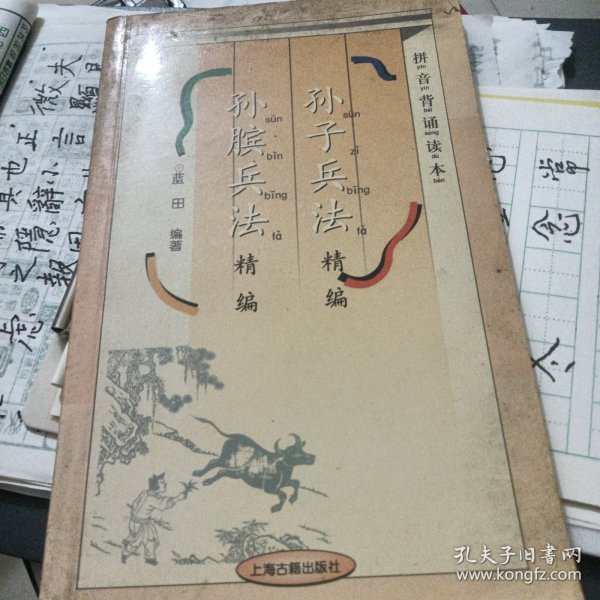 拼音背诵读本
pīn yīn bèi sòng dú běn
孙子兵法精编
sūn zǐ bīng fǎ
孙膑兵法精编
sūn bìn bīng fǎ
蓝田 编著
上海古籍出版社
孔夫子旧书网
www.kongfz.com
微顯
其也正言
之隱辭小
常
念